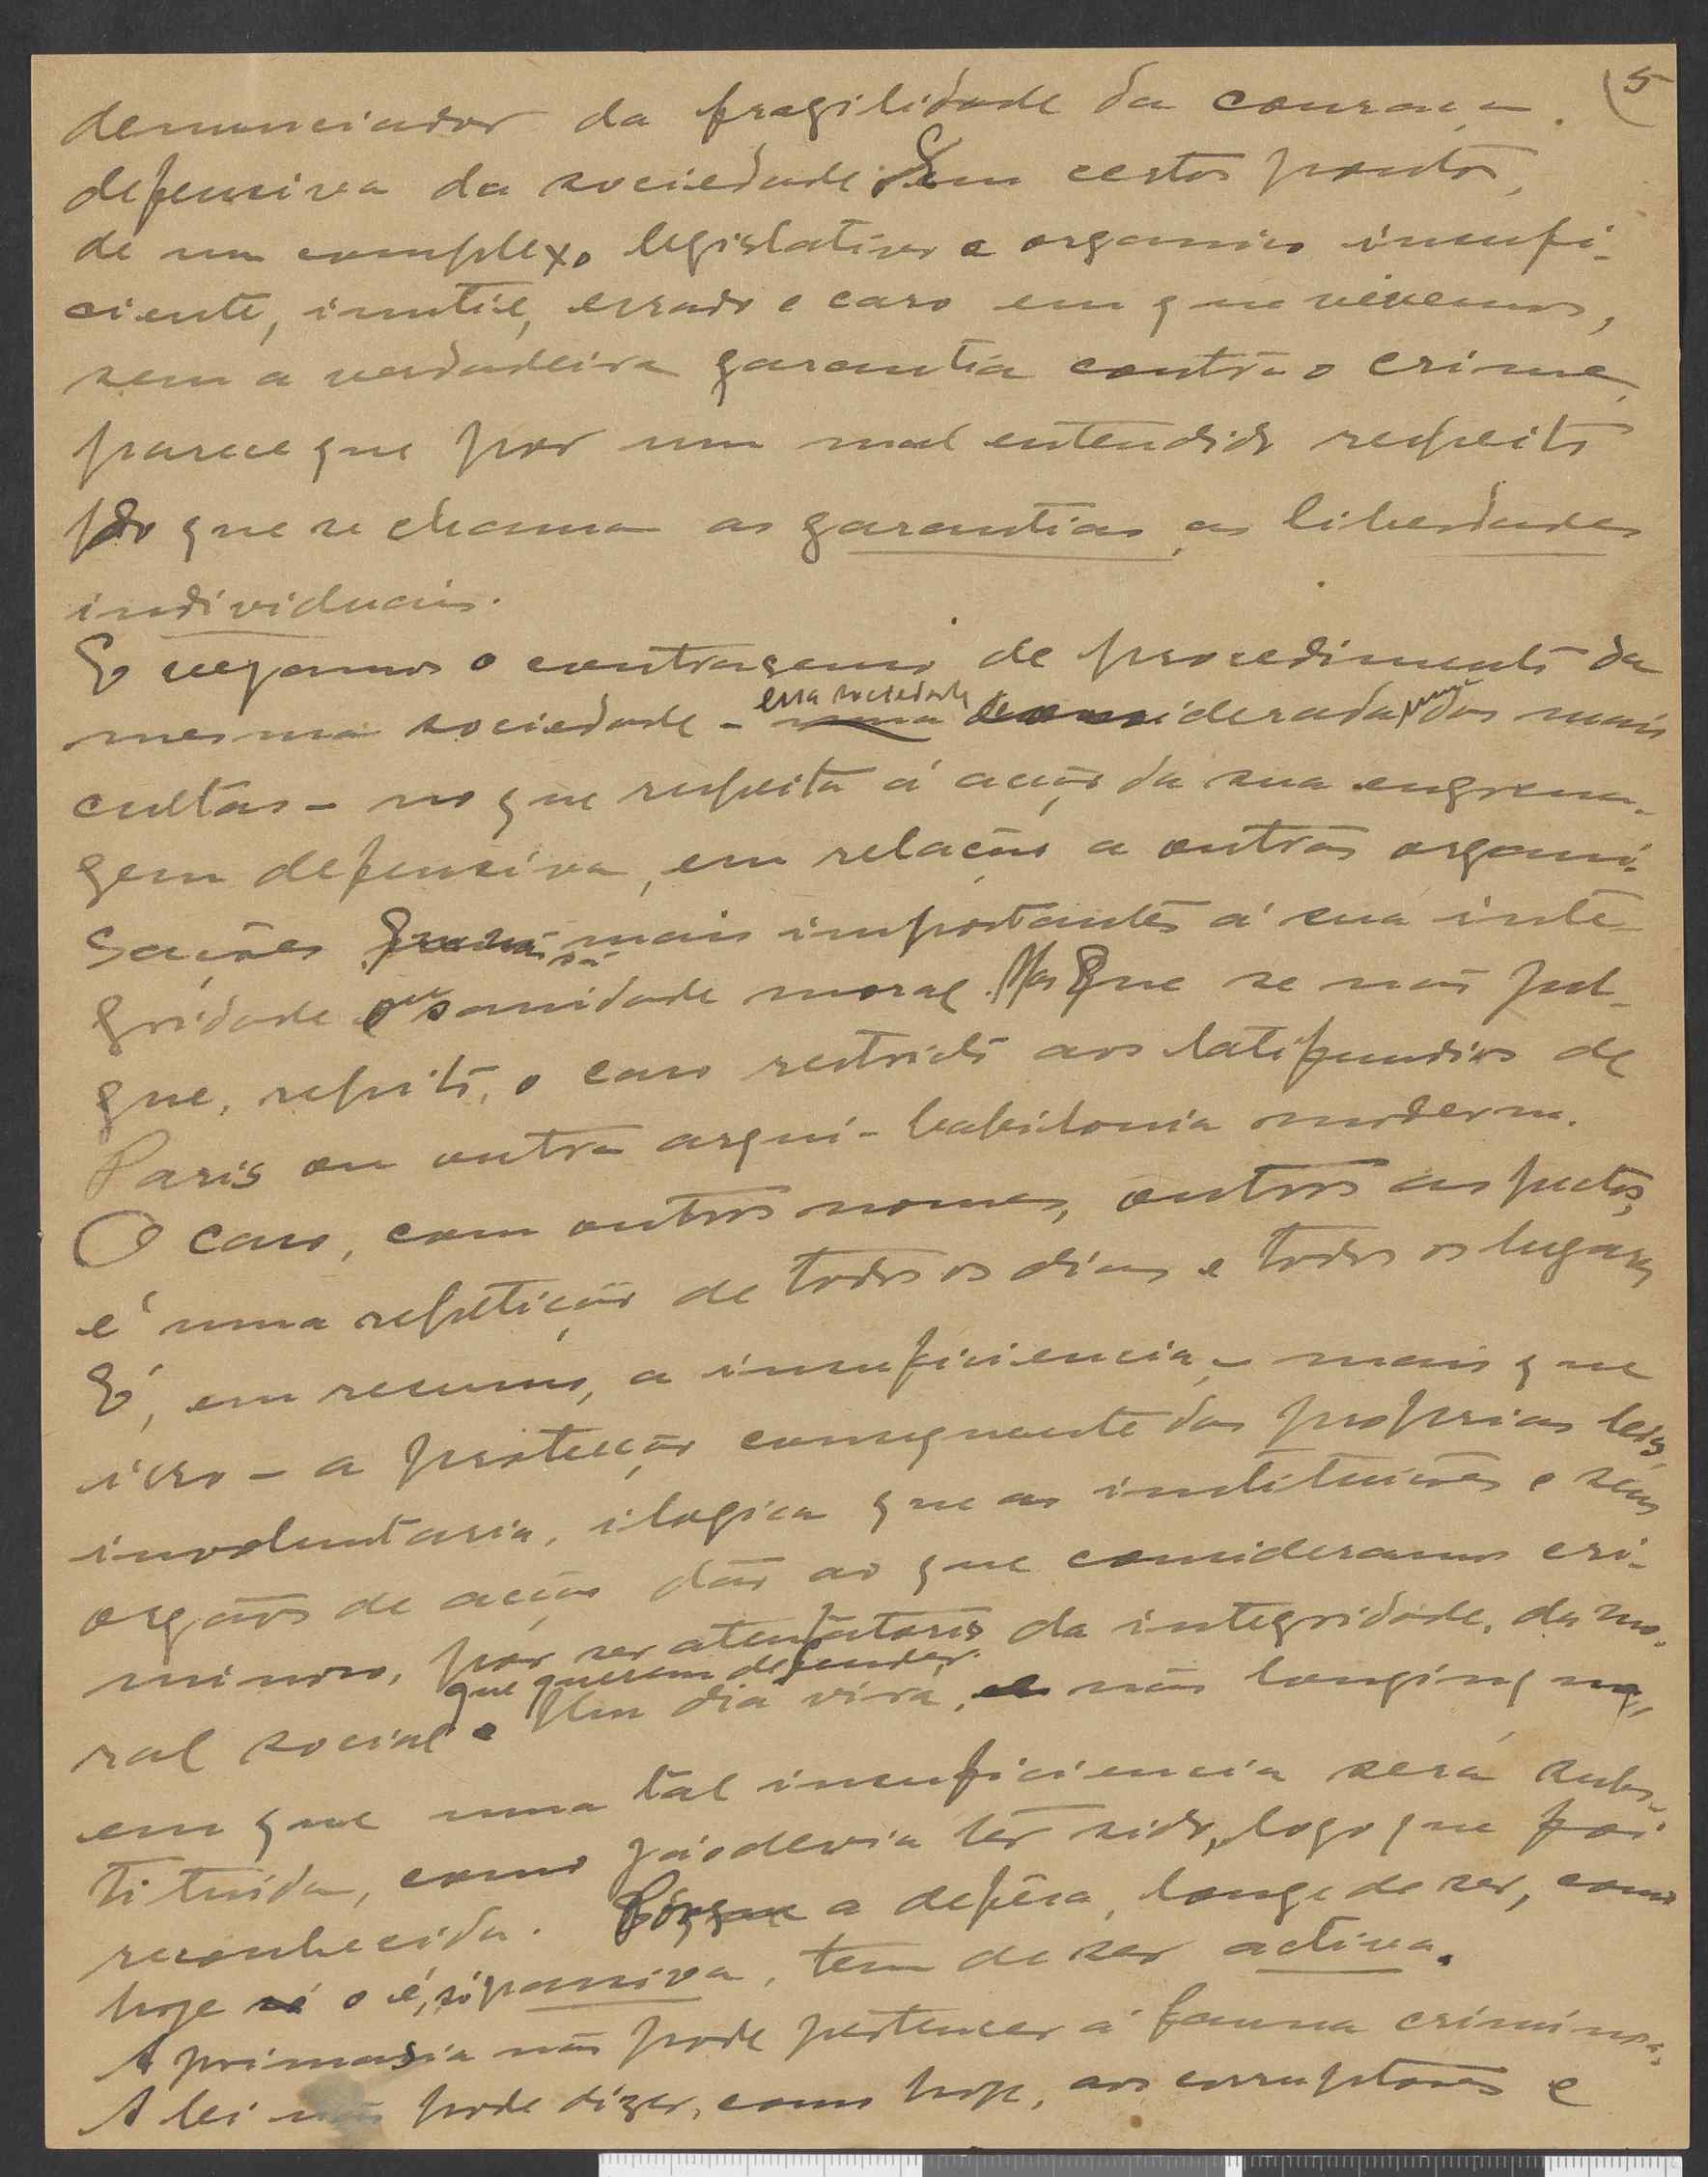 5
denunciador da fragilidade da couraça
defensiva da sociedade. Em certos pontos,
de um complexo legislativo e organico insufi-
ciente, inutil, errado e caro em que vivemos,
sem a verdadeira garantia contra o crime,
parece que por um mal entendido respeito
do que se chama as garantias, as liberdades
individuais.
E vejamos o contrasenso de procedimento da
mesma sociedade - essa sociedade considerada das mais
cultas - no que respeita á acção da sua engrena-
gem defensiva, em relação a outras organi-
sações mais importantes á sua inte-
gridade ou sanidade moral. Mas que se não jul-
gue, repito, o caso restricto aos latifundios de
Paris ou outra arqui-babilonia moderna.
O caso, com outros nomes, outros aspectos,
é uma repetição de todos os dias e todos os lugares
É, em resumo, a insuficiencia, - mais que
isso - a protecção consequente das proprias leis,
involuntaria, ilogica que as instituições e seus
orgãos de acção dão ao que consideramos cri-
minoso, por ser atentatorio da integridade, da mo-
ral social que querem defender.
Um dia virá, não longinquo,
em que uma tal insuficiencia será subs-
tituida, como já o devia ter sido, logo que foi
reconhecida. Porque a defêsa, longe de ser, como
hoje o é, só passiva, tem de ser activa.
A primasia não pode pertencer á fauna criminosa.
A lei não pode dizer, como hoje, aos corruptores e